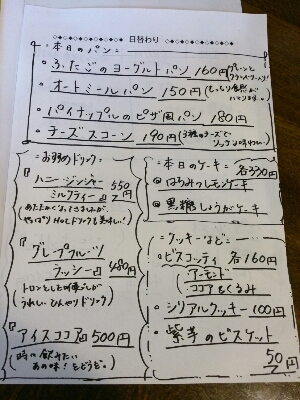 日替わり
:本日のパン:
・ふたごのヨーグルトパン 160円(プレーンと
・オートミールパン 150円(もっちり食感が
・パイナップルのピザ風パン 180円
・チーズスコーン 190円(3種のチーズで
:お勧めドリンク:
『ハニージンジャーミルクティー』 550円
(あたたかくなってきましたが、
やっぱりHotドリンクも美味しい!)
『グレープフルーツ
ラッシー』 480円
(トロンとした口当たりが
うれしいひんやりドリンク)
『アイスココア』 500円
(時々飲みたい
あの味!をどうぞ。)
:本日のケーキ: 各330円
はちみつレモンケーキ
黒糖しょうがケーキ
:クッキーなど:
・ビスコッティ 各160円
(アーモンド
ココアとくるみ
・シリアルクッキー 100円
・紫芋のビスケット
50円